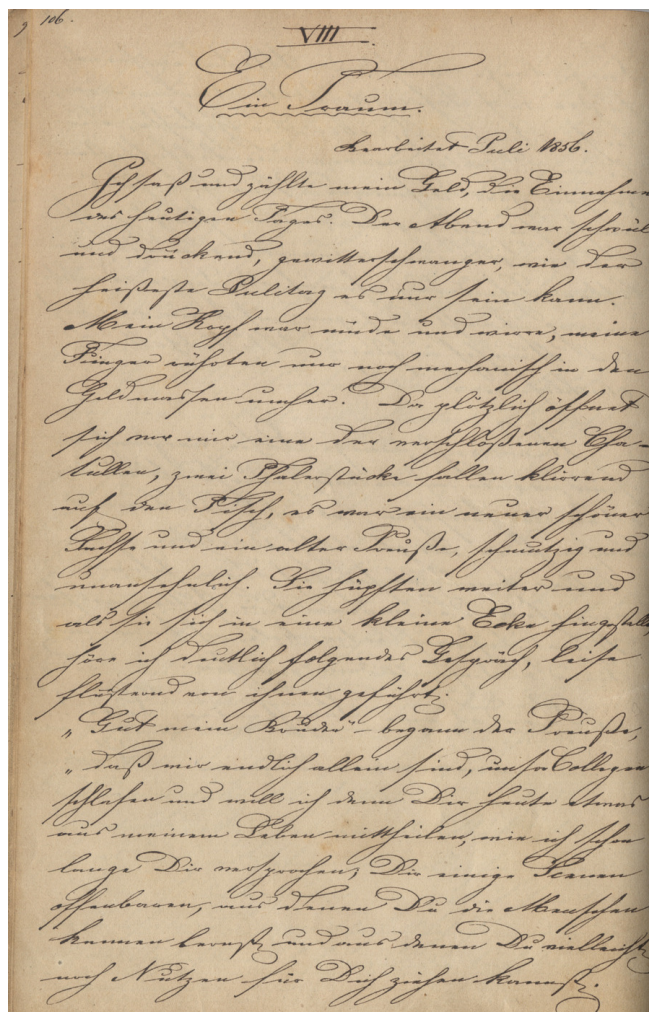 106.
VIII.
Ein Traum.
Bearbeitet Juli 1856.
Ich saß und zählte mein Geld, die Einnahme
des heutigen Tages. Der Abend war schwül
und drückend, gewitterschwanger, wie der
heißeste Julitag es nur sein kann.
Mein Kopf war müde und wirre, meine
Finger rührten nur noch mechanisch in den
Geldmassen umher. Da plötzlich öffnet
sich vor mir eine der verschloßenen Cha-
tullen, zwei Thalerstücke fallen klirrend
auf den Tisch, es war ein neuer schöner
Sachse und ein alter Preuße, schmutzig und
unansehnlich. Sie hüpften weiter und
als sie sich in eine kleine Ecke hingestellt,
höre ich deutlich folgendes Gespräch, leise
flüsternd von ihnen geführt.
„Gut mein Bruder" – begann der Preuße,
„daß wir endlich allein sind, unsre Collegen
schlafen und will ich denn Dir heute etwas
aus meinem Leben mittheilen, wie ich schon
lange Dir versprochen, Dir einige Scenen
offenbaren, aus denen Du die Menschen
kennen lernst, und aus denen Du vielleicht
noch Nutzen für Dich ziehen kannst.